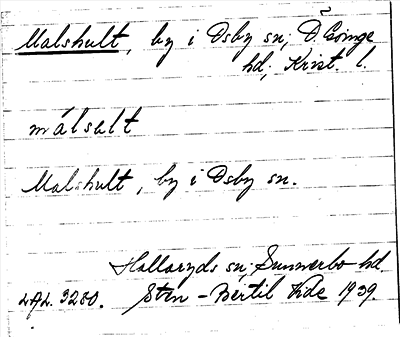 Malshult, by i Osby sn; Ö. Göinge
hd, Krist. l.
málsult
Malshult, by i Osby sn.
Hallaryds sn; Sunnerbo hd.
Sten-Bertil Vide 1939.